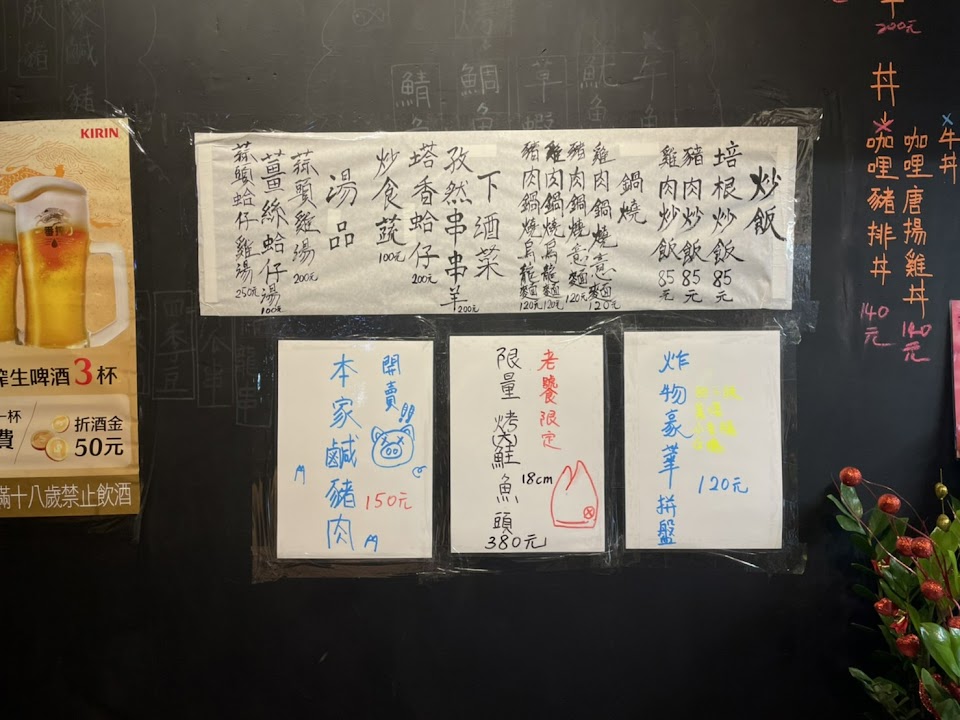 炒飯
培根炒飯 85元
豬肉炒飯 85元
雞肉炒飯 85元
鍋燒
雞肉鍋燒意麵 120元
豬肉鍋燒意麵 120元
雞肉鍋燒烏龍麵 120元
豬肉鍋燒烏龍麵 120元
下酒菜
孜然串串羊 200元
塔香蛤仔 200元
炒食蔬 100元
湯品
蒜頭雞湯 200元
薑絲蛤仔湯 100元
蒜頭蛤仔雞湯 250元
開賣!!
本家鹹豬肉
150元
老饕限定
限量烤(大)鮭魚頭
18cm
380元
炸物豪華拼盤
120元
200元
丼
牛丼
咖哩唐揚雞丼 140元
咖哩豬排丼 140元
KIRIN
生啤酒3杯
一杯
費
折酒金
50元
滿十八歲禁止飲酒
鯖
鯛魚
草蝦
魷魚
牛